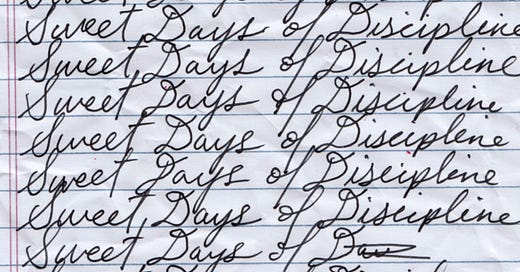 Sweet Days of Discipline
Sweet Days of Discipline
Sweet Days of Discipline
Sweet Days of Discipline
Sweet Days of Discipline
Sweet Days of Discipline
Sweet Days of